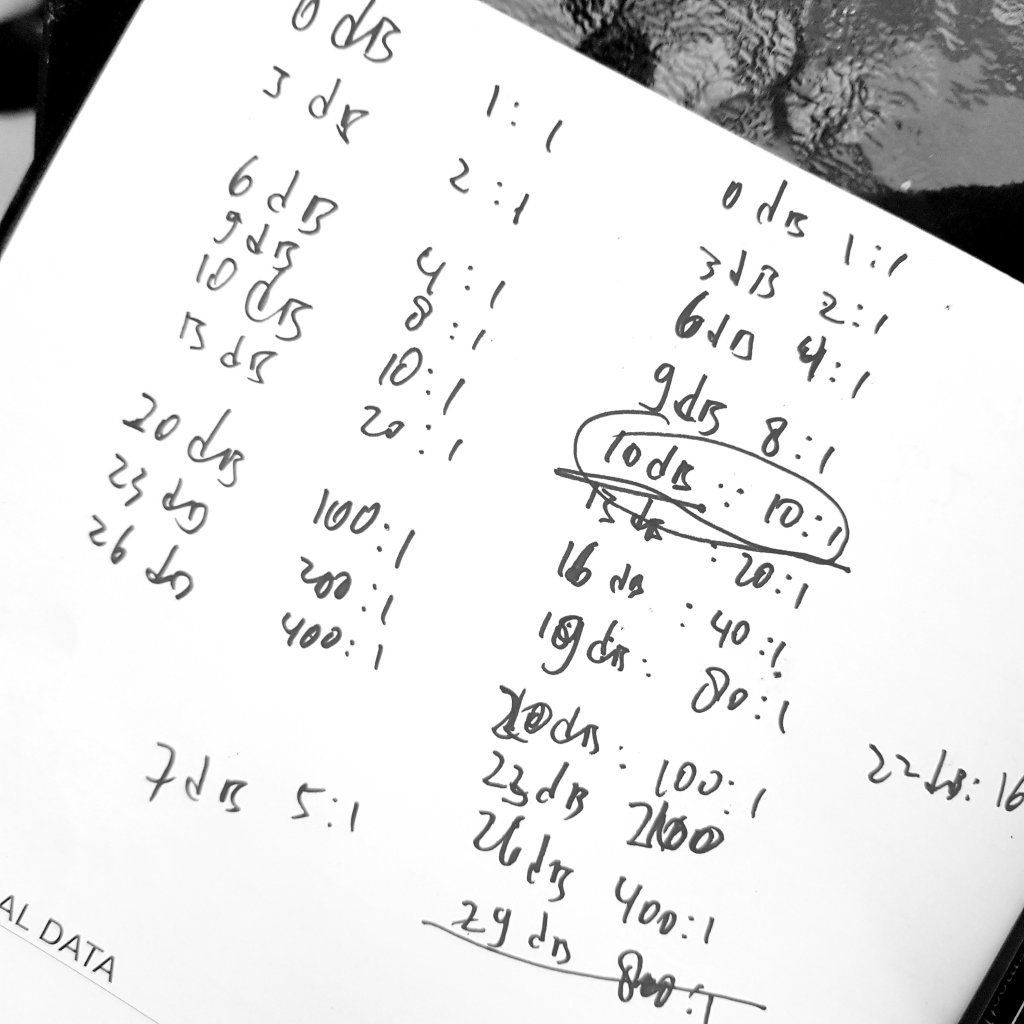 0 dB 1:1
3 dB 2:1
6 dB 4:1
9 dB 8:1
10 dB 10:1
13 dB 20:1
20 dB 100:1
23 dB 200:1
26 dB 400:1
7 dB 5:1
0 dB 1:1
3 dB 2:1
6 dB 4:1
9 dB 8:1
10 dB : 10:1
13 dB : 20:1
16 dB : 40:1
19 dB : 80:1
20 dB : 100:1
23 dB 200
26 dB 400:1
29 dB 800:1
22 dB: 16
AL DATA